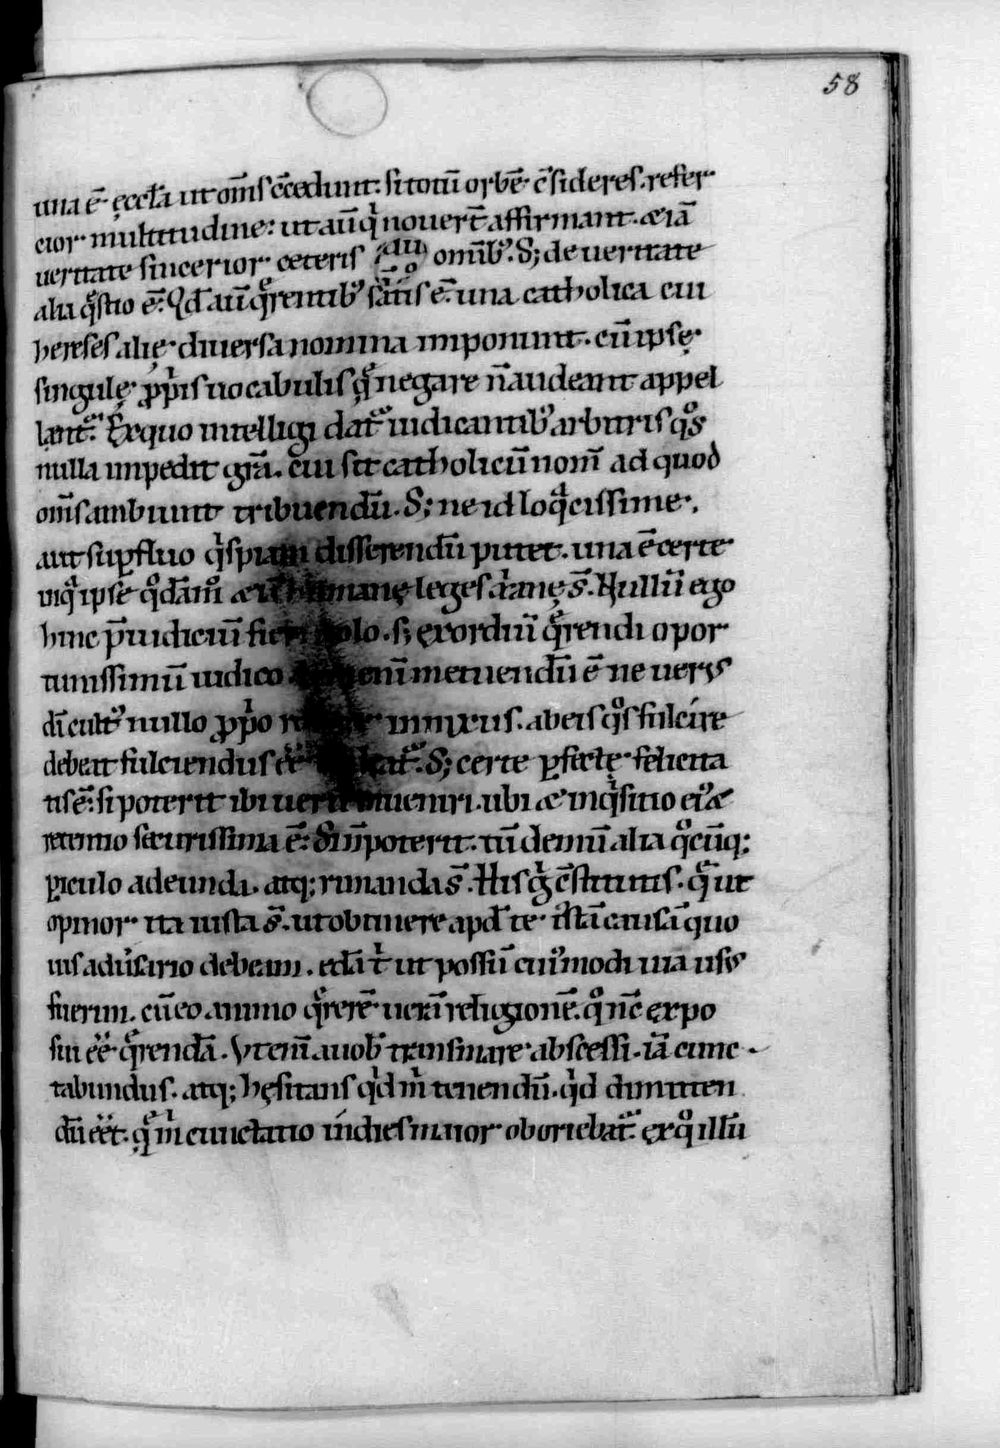 58
una ē ęccl̄a ut om̄s c̄cedunt: si totū orbē c̄sideres. refer
cior multitudine: ut aū q̇ nouer̄t affirmant. & iā
ueritate sincerior ceteris omīb;. S; de ueritate
alia q̄stio ē. Qd̄ aū q̄rentib; satis ē: una catholica cui
hereses alię diuersa nomina imponunt. cū ipsę
singulę pp̄is uocabulis q̄ negare n̄ audeant appel
lant᷑. Ex quo intelligi dat᷑ iudicantib; arbitris q̊s
nulla impedit gr̄a. cui sit catholicū nom̄ ad quod
om̄s ambiunt tribuendū. S; ne id loq̄cissime.
aut sup̄fluo q̇spiam disserendū putet. una ē certe
in q̇ ipsę q̊dāmo & humanę leges xr̄ianę s̄. Nullū ego
hinc p̄iudiciū fieri uolo. s; exordiū q̄rendi opor
tunissimū iudico. enī metuendū ē ne uerus
dī cult᷑ nullo pp̄o innixus. ab eis q̊s fulcire
debeat fulciendus eē᷑. S; certe p̄fectę felicita
tis ē: si poterit ibi ueritas inueniri. ubi & inq̇sitio ei᷑ &
retentio securissima ē. Si n̄ poterit. tū demū alia q̊cūq;
p̄iculo adeunda. atq; rimanda s̄. His g̊ c̄stitutis. q̄ ut
opinor ita iusta s̄. ut obtinere apd̄ te istā causā quo
uis aduersario debeam. edā t̄ ut possū cui᷑modi uia usus
fuerim. cū eo animo q̄rerē uerā religionē. q̊ nc̄ expo
sui eē᷑ q̄rendā. Ut enī a uob̄ trans mare abscessi. iā cunc
tabundus. atq; hęsitans q̇d m̄ tenendū. q̇d dimitten
dū eēt᷑. q̄ m̄ cunctatio in dies maior oboriebat᷑. ex q̊ illū